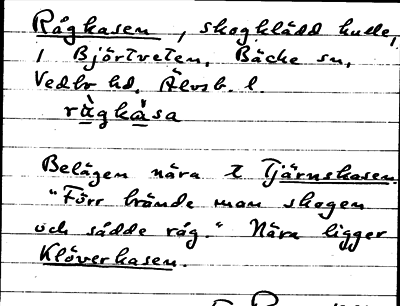 Rågkasen, skogklädd kulle,
i Björtveten, Bäcke sn,
Vedbo hd, Älvsb. l.
rå̀gkå̀sa
Belägen nära t Tjärnskasen.
"Förr brände man skogen
och sådde råg." Nära ligger
Klöverkasen.